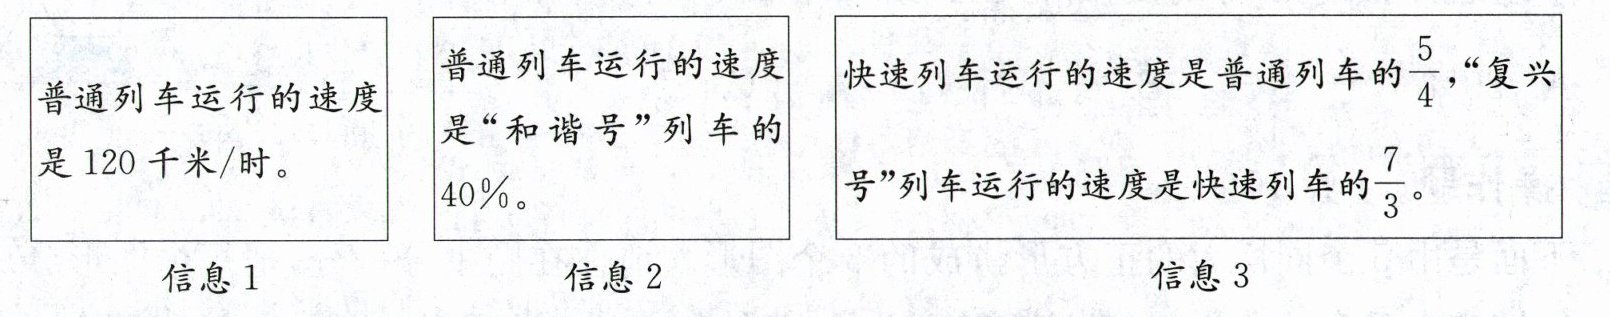 普通列车运行的速度
是 120 千米/时。
信息 1
普通列车运行的速度
是“和谐号”列车的
40%。
信息 2
快速列车运行的速度是普通列车的5/4,“复兴
号”列车运行的速度是快速列车的7/3。
信息 3